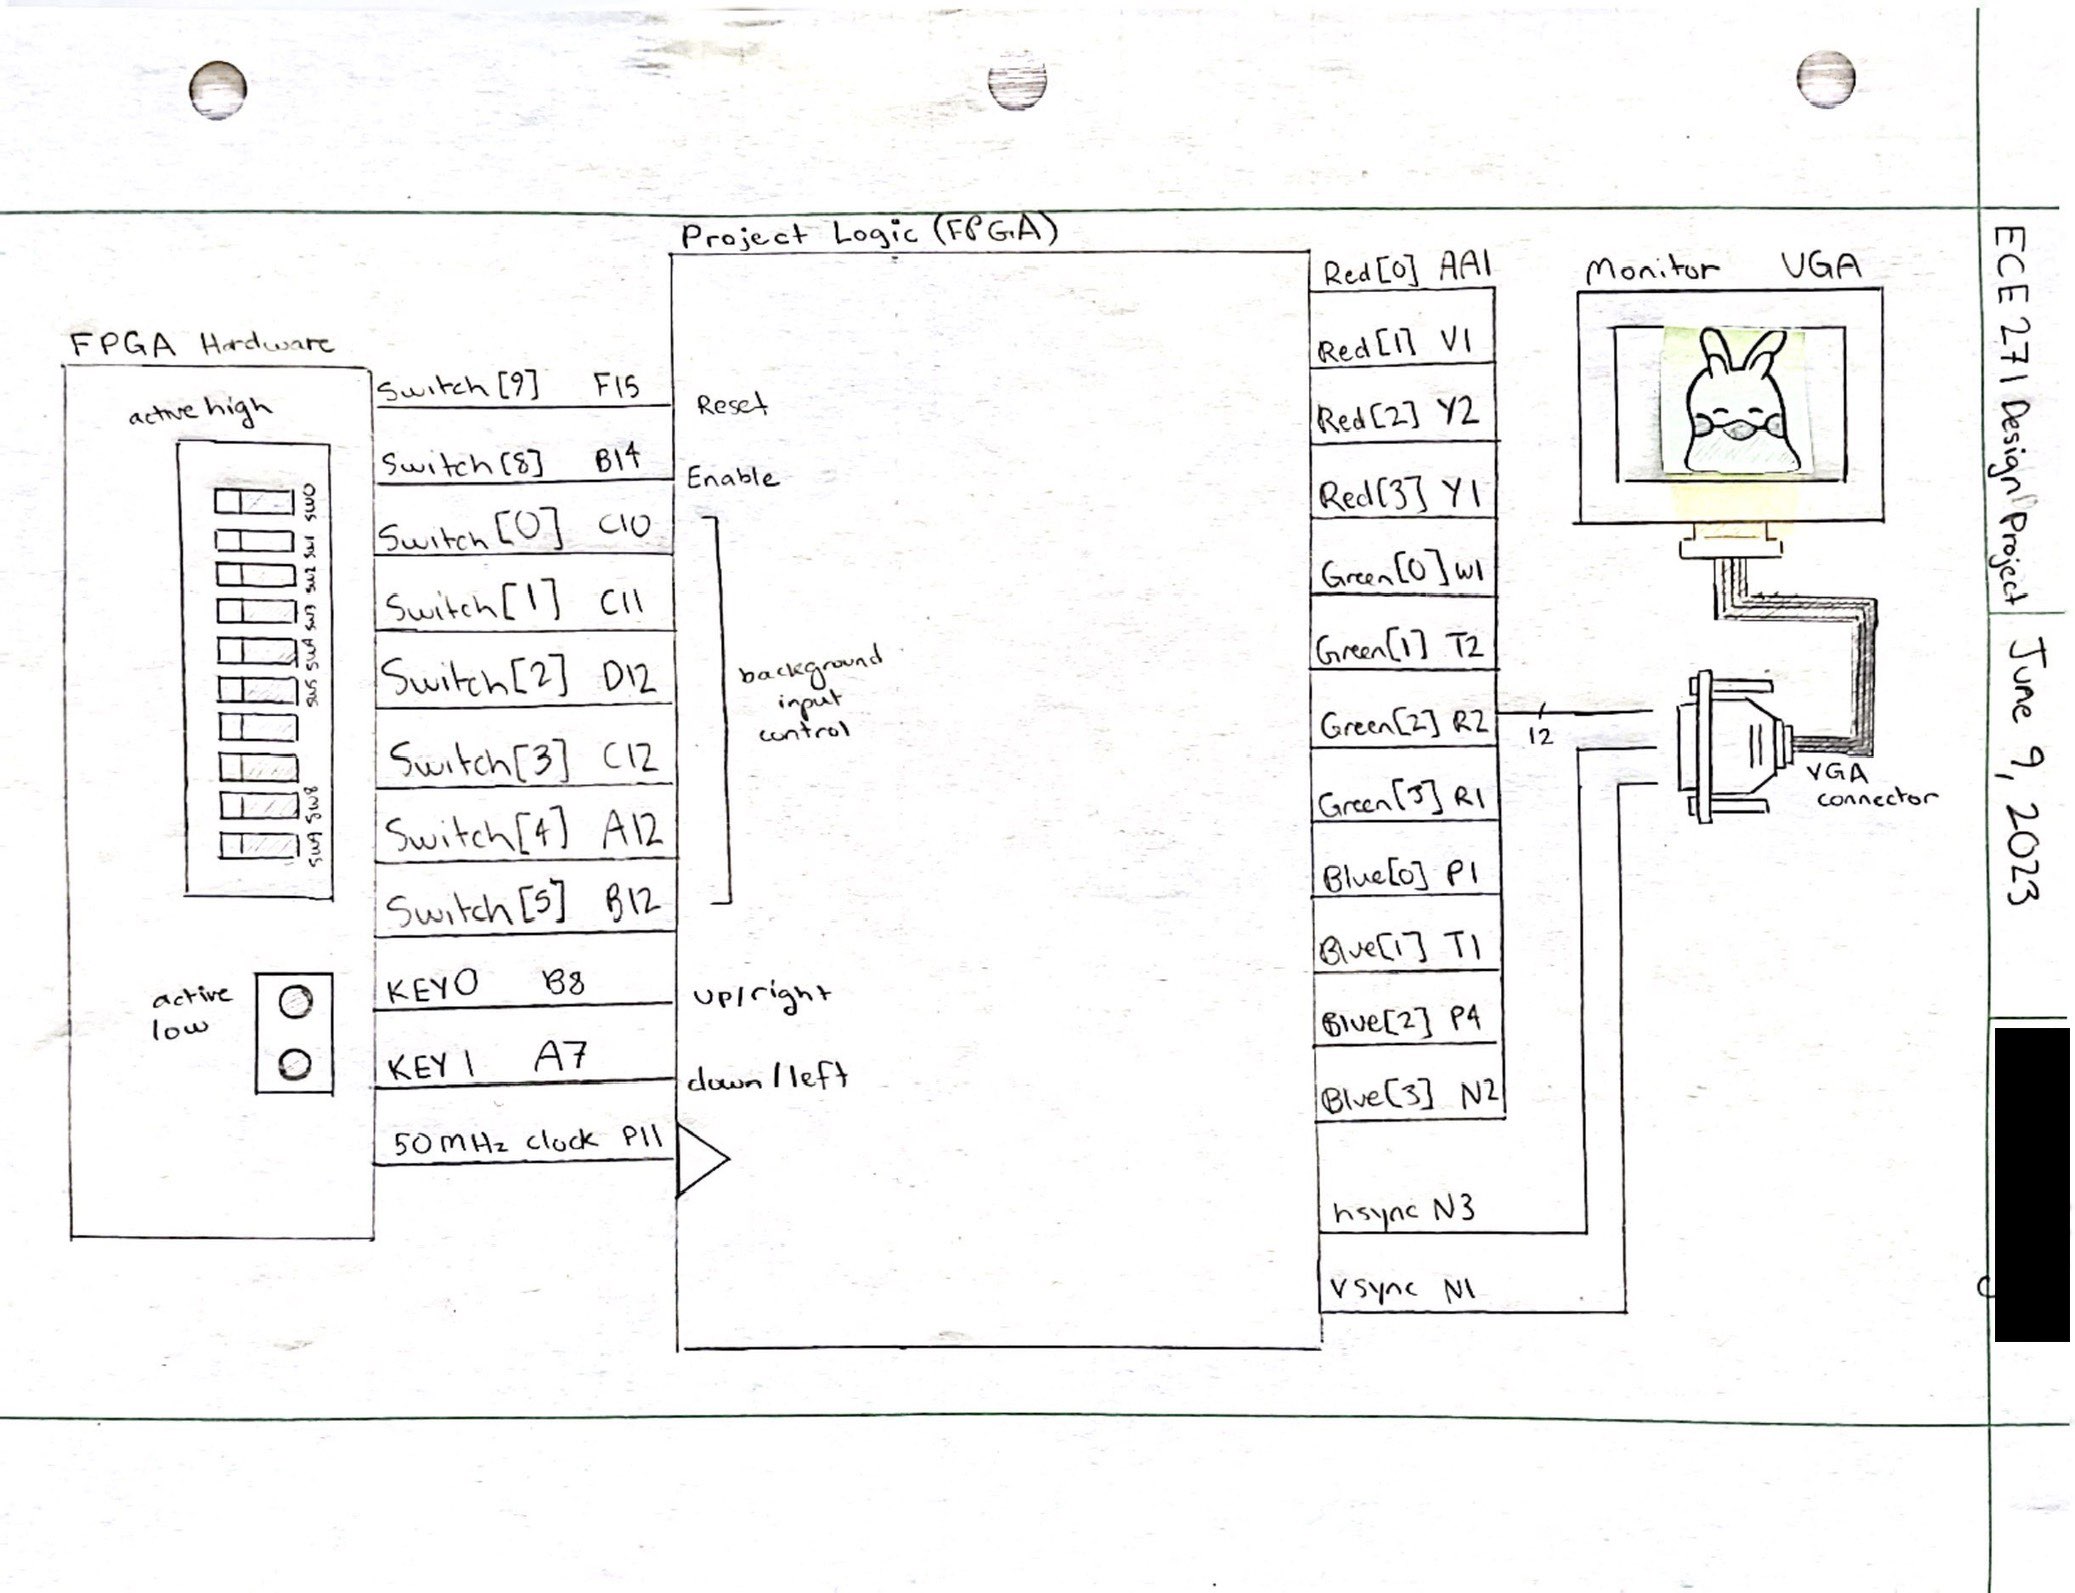 Project Logic (FPGA)
FPGA Hardware
active high
SW0
SW1
SW2
SW3
SW4
SW5
SW8
SW9
active
low
Switch [9] F15
Switch [8] B14
Switch [0] C10
Switch [1] C11
Switch [2] D12
Switch [3] C12
Switch [4] A12
Switch [5] B12
KEY0 B8
KEY1 A7
50MHz clock P11
Reset
Enable
background
input
control
up/right
down/left
Red[0] AA1
Red[1] V1
Red[2] Y2
Red[3] Y1
Green[0] W1
Green[1] T2
Green[2] R2
Green[3] R1
Blue[0] P1
Blue[1] T1
Blue[2] P4
Blue[3] N2
hsync N3
vsync N1
12
Monitor VGA
VGA
connector
ECE 271 Design Project
June 9, 2023